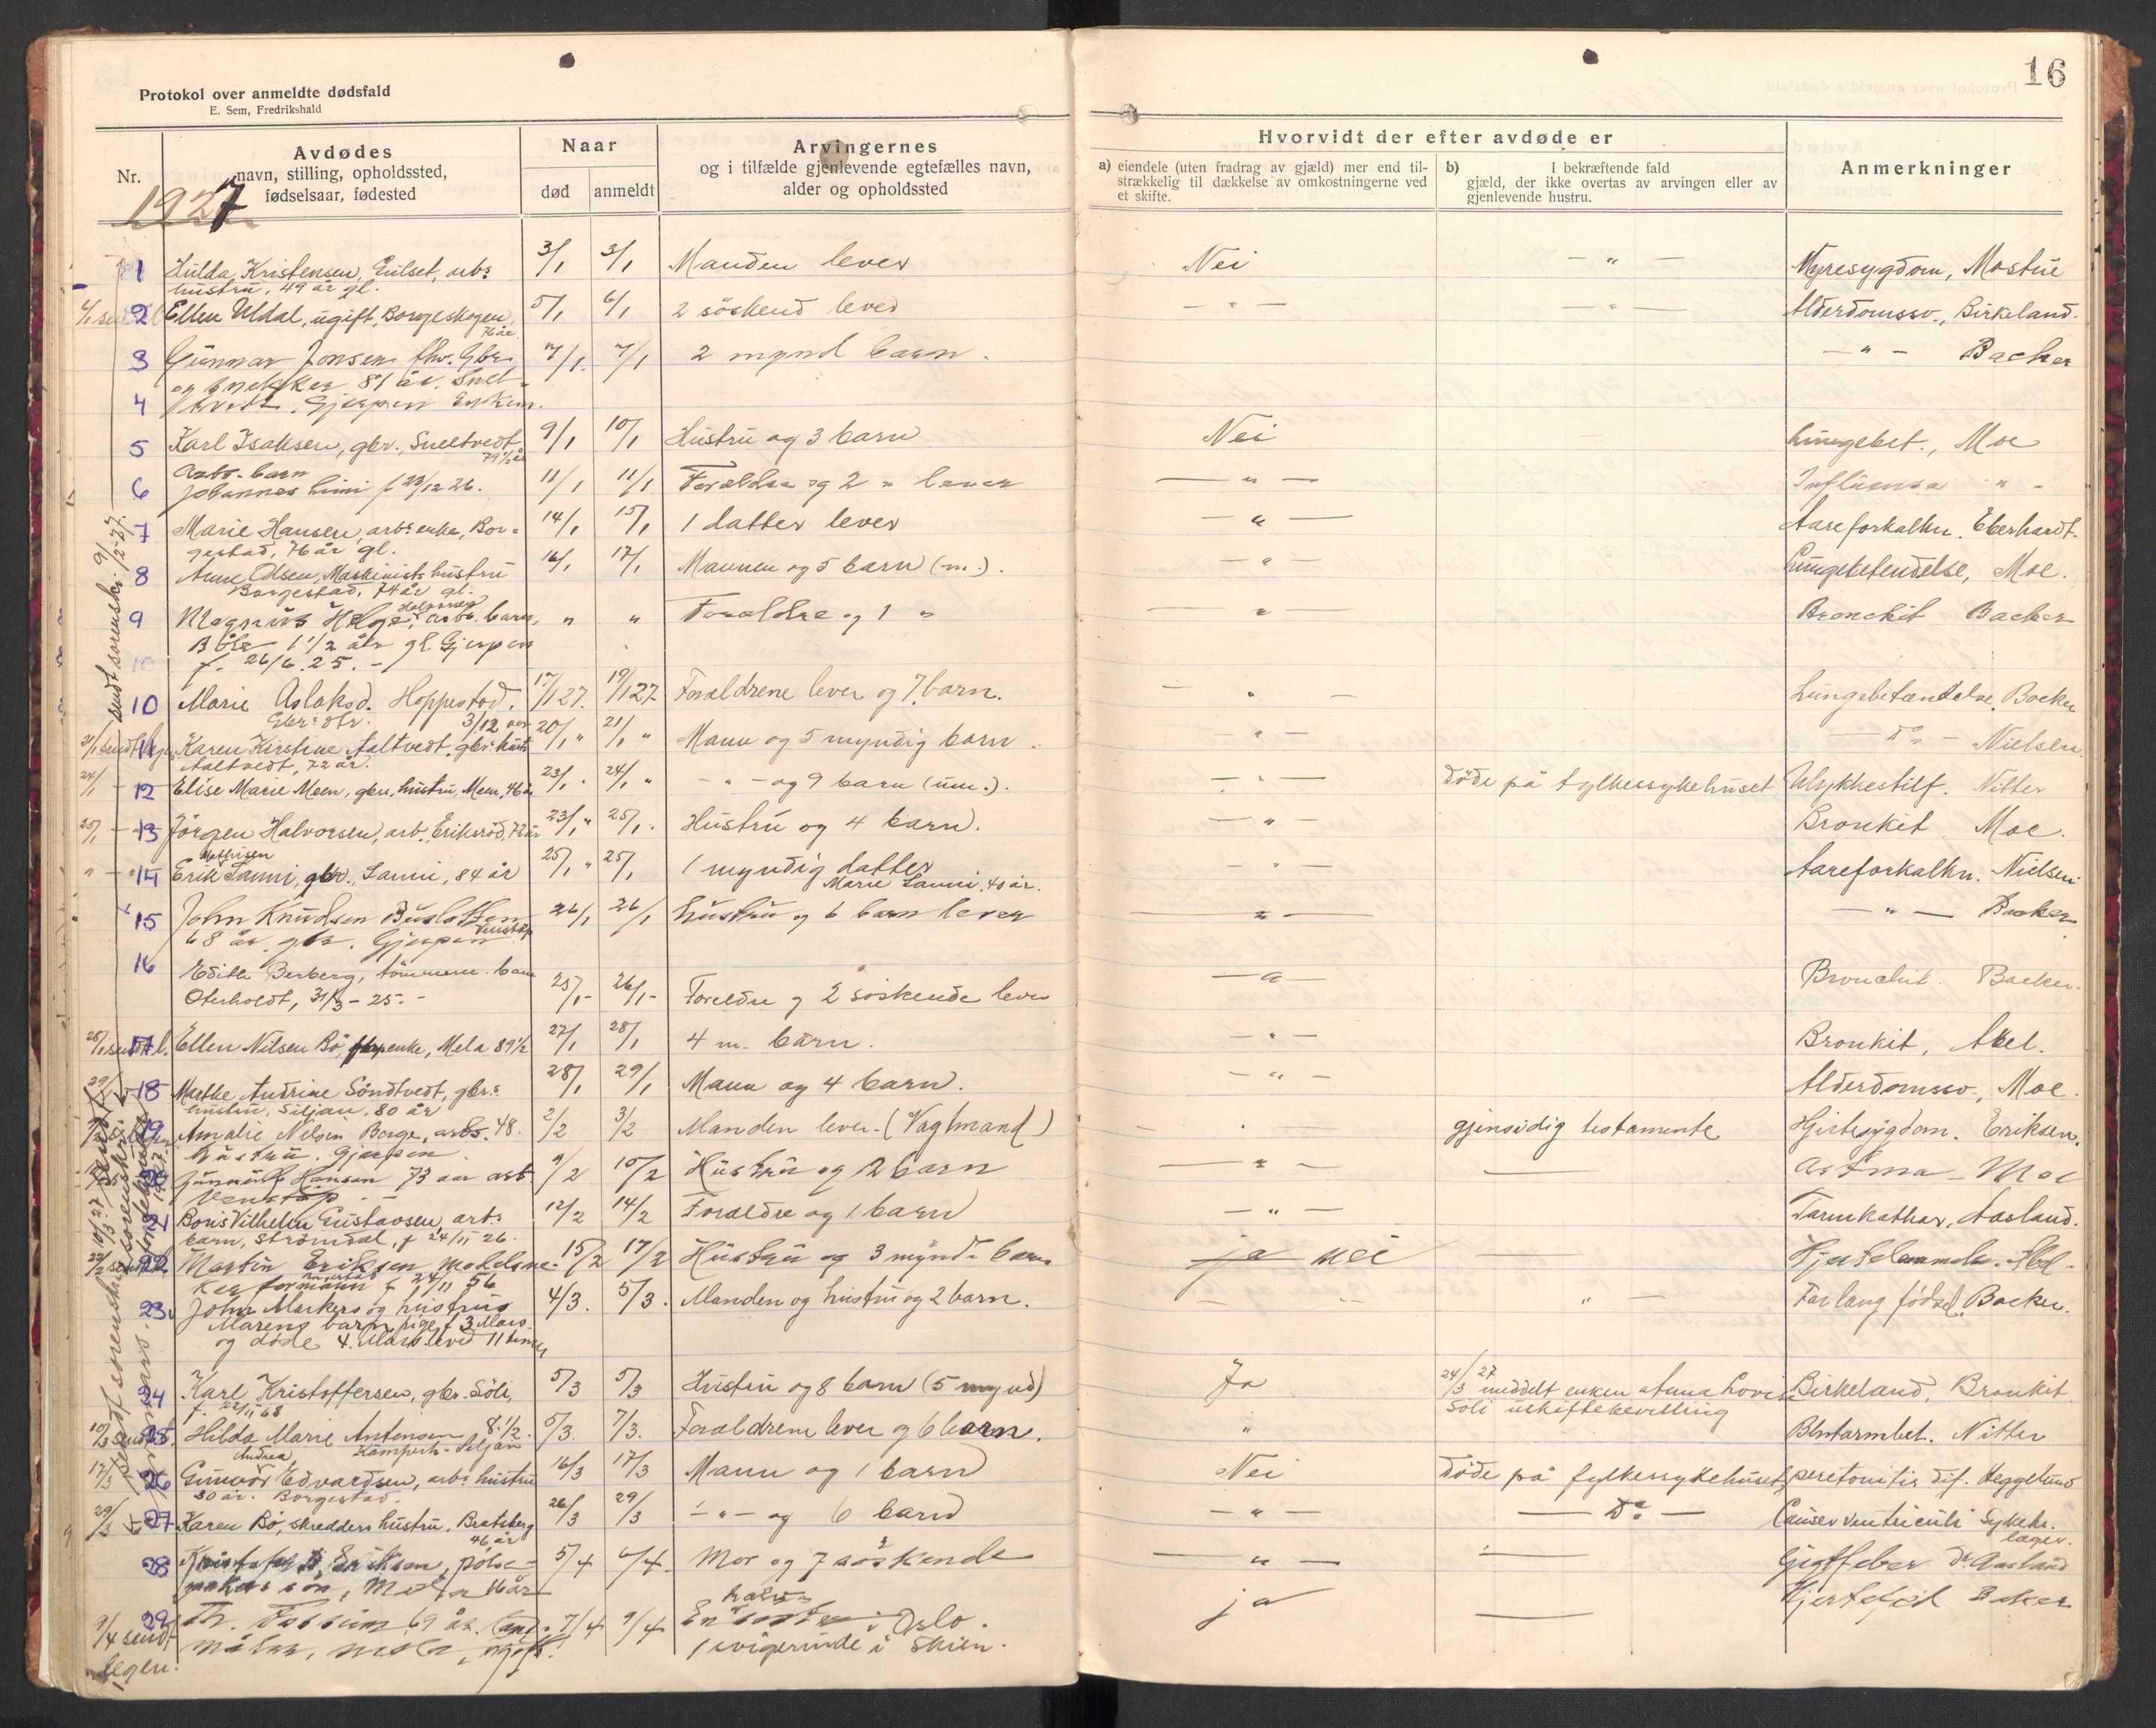 16
Protokol over anmeldte dødsfald
E. Sem, Fredrikshald
Nr.
Avdødes
navn, stilling, opholdssted,
fødselsaar, fødested
Naar
død anmeldt
Arvingernes
og i tilfælde gjenlevende egtefælles navn,
alder og opholdssted
Hvorvidt der efter avdøde er
a) eiendele (uten fradrag av gjæld) mer end til-
strækkelig til dækkelse av omkostningerne ved
et skifte.
b) I bekræftende fald
gjæld, der ikke overtas av arvingen eller av
gjenlevende hustru.
Anmerkninger
1927
1 Hulda Kristensen, Gulset, arbs 3/1 3/1 Manden lever Nei — " — Nyresygdom, Mostue
hustru, 49 år gl.
2 Ellen Uldal, ugift, Borgeskogen 5/1 6/1 2 söskend leved — " — — " — Alderdomssv., Birkeland.
76 år
3 Gunnar Jonsen fhv. Gbr. 7/1 7/1 2 mynd barn. — " — Backer
og snekker 81 år. Snel-
4 tvedt. Gjerpen Enkem.
5 Karl Isaksen, gbr., Sneltvedt 9/1 10/1 Hustru og 3 barn Nei Lungebet., Moe
79 1/2 år
Arbs. barn
6 Johannes Limi f 23/12 26. 11/1 11/1 Forældre og 2 " lever — " — Influensa " -
7 Marie Hansen, arbs enke, Bor- 14/1 15/1 1 datter lever — " — Aareforkalkn. Eberhardt.
gestad, 76 år gl.
8 Anne Olsen, Maskinists hustru 16/1 17/1 Mannen og 5 barn (m.). — " — Lungebetendelse, Moe.
Borgestad, 74 år gl.
9 Magnus Helge Halvorsen, arbs. barn, " " Forældre og 1 " — " — Bronchit Backer
Böle 1 1/2 år gl Gjerpen
f. 26/6 25. -
10 Marie Aslaksd. Hoppestad. 17/1 27. 19/1 27 Forældrene lever og 7 barn. — " — Lungebetændelse. Backer
Gbrs dtr. 3/12 aar
11 Karen Kirstine Aaltvedt, gbrs hust 20/1 " 21/1 " Mann og 5 myndig barn. — " — — Do — Nielsen
Aaltvedt, 72 år.
24/1 — 12 Elise Marie Meen, gbrs. hustru, Meen, 46 år 23/1 " 24/1 " — " — og 9 barn (um.). — " — Döde på fylkessykehuset Ulykkestilf. Nitter
25/1 — 13 Jörgen Halvorsen, arb. Eriksröd, 72 år 23/1 " 25/1. Hustru og 4 barn. — " — Bronkit Moe.
Mathisen
" — 14 Erik Lanni, gbr., Lanni, 84 år 25/1 " 25/1 1 myndig datter — " — Aareforkalkn. Nielsen
Marie Lanni, 40 år.
15 John Knudsen Buslatten 26/1 26/1 Hustru og 6 barn lever — " — — " — Backer
68 år, gbr. Gjerpen Venstøp
16 Edith Berberg, tömmerm. barn 25/1 - 26/1 - Foreldre og 2 söskende lever — " — Bronchit Backer.
Oterholdt, 31/3 - 25. -
17 Ellen Nilsen Bö, enke, Mela 89 1/2 27/1 28/1 4 m. barn. — " — Bronkit, Abel.
18 Marthe Andrine Söndtvedt, gbrs 28/1 29/1 Mann og 4 barn. — " — Alderdomssv., Moe.
hustru, Siljan, 80 år
19 Amalie Nilsen Borge, arbs. 48. 2/2 3/2 Manden lever. (Vagtmand) gjensidig testamente Hjertesygdom. Eriksen.
Hustru. Gjerpen.
20 Gunnulf Hansen 73 aar arb. 9/2 10/2 Hustru og 2 barn — " — — Astma - Moe
Venstøp
21 Boris Vilhelm Gustavsen, arbs 12/2 14/2 Forældre og 1 barn — " — Tarmkathar, Aasland.
barn, Strömdal, f 24/11 26.
22 Martin Eriksen modelsne- 15/2 17/2 Hustru og 3 mynd. barn ja nei — Abel.
ker formann f 24/11 56
23 John Markers og hustrus 4/3. 5/3. Manden og hustru og 2 barn. — " — For lang fødsel. Backer.
Marens barn pige f 3 Mars
og døde 4. Mars leved 11 timer
24 Karl Kristoffersen, gbr. Söli, 5/3 5/3 Hustru og 8 barn (5 mynd) Ja 24/3 27 meddelt enken Anna Lovise Birkeland, Bronkit
f. 22/11 68 Söli uskiftebevilling
25 Hilda Marie Antonsen 8 1/2. 5/3. 7/3. Forældrene lever og 6 barn. " Blintarmbet. Nitter
Siljan
Andrea
17/3 26 Gunvor Edvardsen, arbs hustru 16/3 17/3 Mann og 1 barn Nei Döde på fylkessykehuset peretonitis dif. Heggelund
30 år. Borgestad.
29/3 27 Karen Bö, skredders hustru, Bratsberg 26/3 29/3 — " — og 6 barn — " — — Do — Canser ventriculi Sykehs.
46 år læger.
28 Eriksen, pølse- 5/4 6/4 Mor og 7 søskende — " — — Gigtfeber Dr. Aasland
makers sön, Mela 16 år
29 Th. Fossum 69 år. 7/4 9/4 En halv i Oslo. ja — Hjertefeil Backer
maler, Mela, ugift. 1 svigerinde i Skien.
9/4 sendt
legen.
sendt sorenskr. 9/2-27.